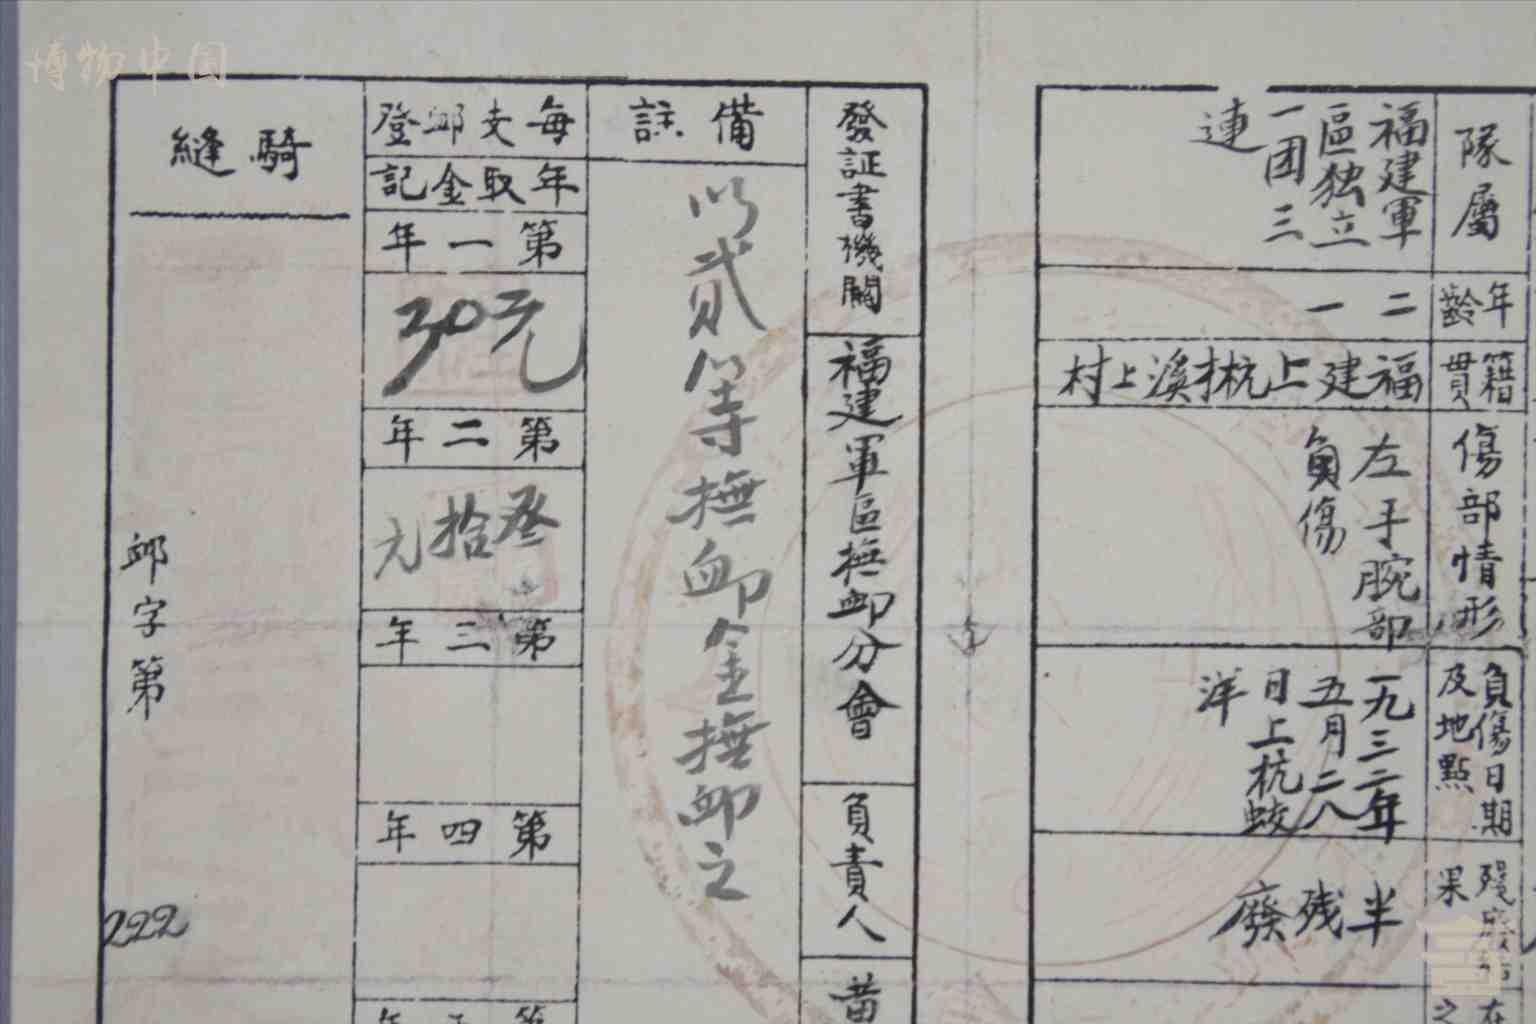 博物中国
隊屬
福建軍
區独立
一团三
連
年齡
二一
籍貫
福建上杭溪上村
傷部情形
左手腕部
負傷
負傷日期
及地點
一九三二年
五月二八
日上杭蛟
洋
殘廢結
果
半残廢
發証書機關
福建軍區撫卹分會
負責人
黄
備註
以貳等撫卹金撫卹之
每年
支取
卹金
登記
第一年
30元
第二年
叁拾元
第三年
第四年
第五年
騎縫
卹字第
222